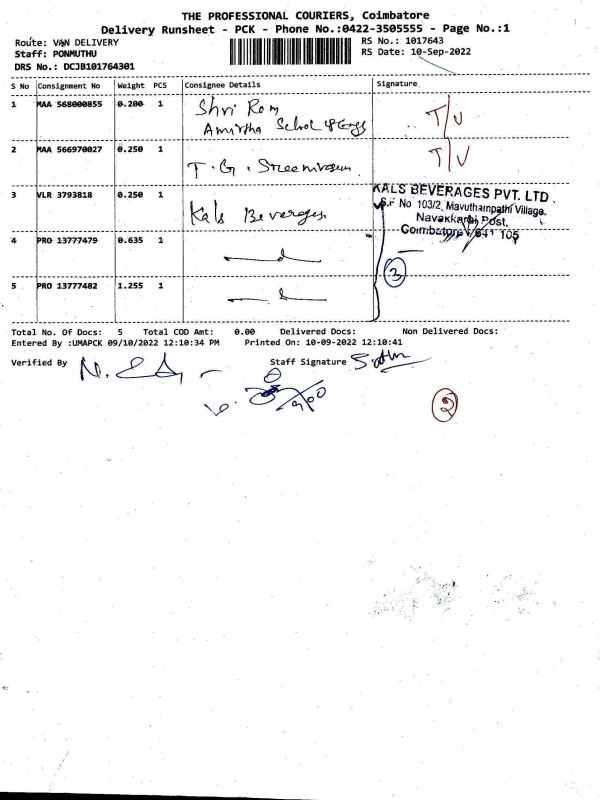 THE PROFESSIONAL COURIERS, Coimbatore
Delivery Runsheet - PCK - Phone No.:0422-3505555 - Page No.:1
Route: VAN DELIVERY RS No.: 1017643
Staff: PONMUTHU RS Date: 10-Sep-2022
DRS No.: DCJB101764301
S No Consignment No Weight PCS Consignee Details Signature
1 MAA 568000855 0.200 1 Shri Ram T/V
Amirtha
2 MAA 566970027 0.250 1 T.G. Sreenivasan T/V
3 VLR 3793818 0.250 1 Kals Beverages
KALS BEVERAGES PVT. LTD
S.F No 103/2, Mavuthampathi Village,
Navakkarai Post,
Coimbatore - 641 105
4 PRO 13777479 0.635 1
3
5 PRO 13777482 1.255 1
Total No. Of Docs: 5 Total COD Amt: 0.00 Delivered Docs: Non Delivered Docs:
Entered By :UMAPCK 09/10/2022 12:10:34 PM Printed On: 10-09-2022 12:10:41
Verified By Staff Signature
2